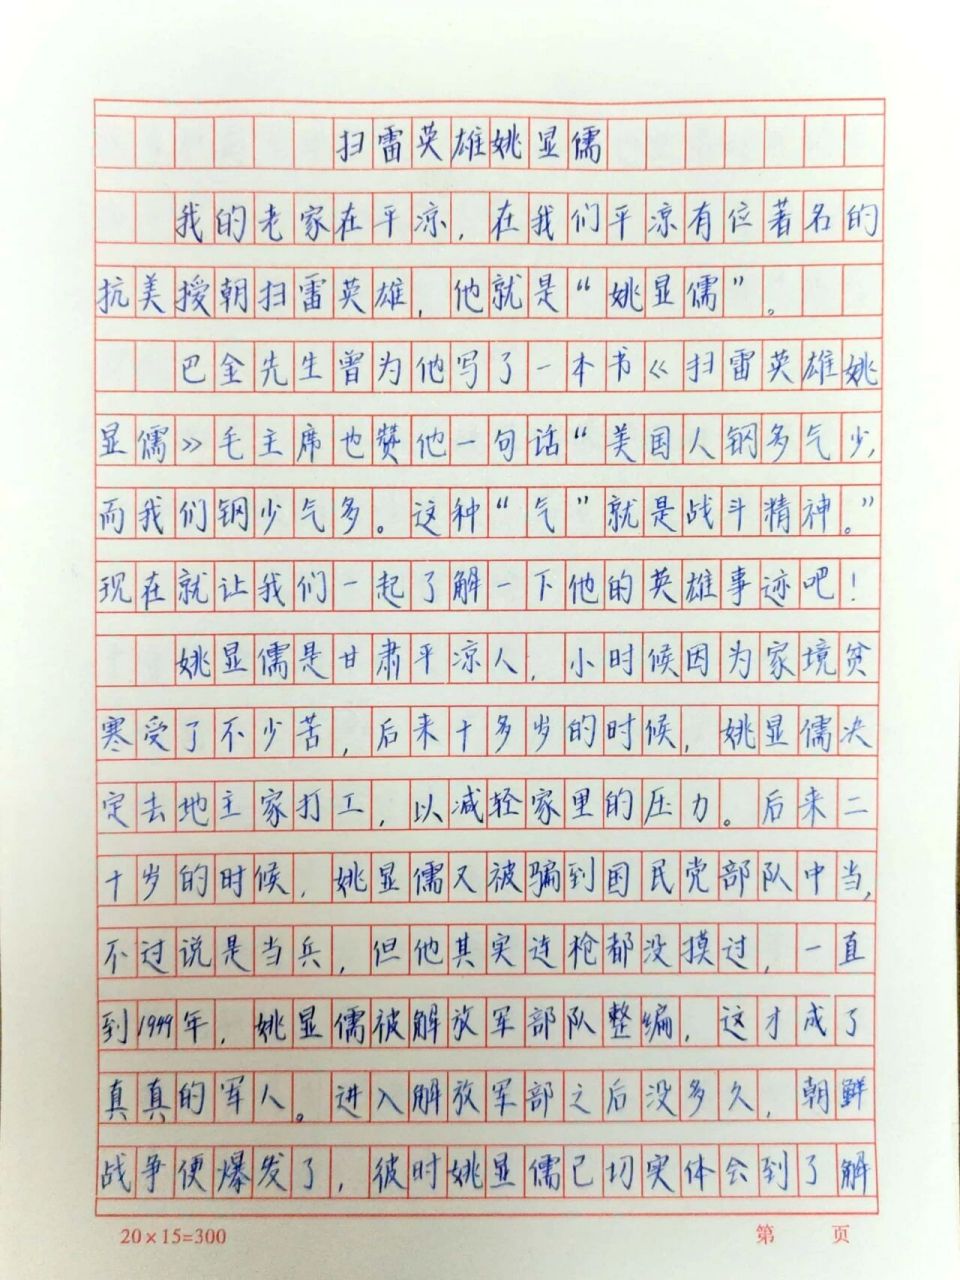 扫雷英雄姚显儒
我的老家在平凉，在我们平凉有位著名的
抗美授朝扫雷英雄，他就是“姚显儒”。
巴金先生曾为他写了一本书《扫雷英雄姚
显儒》毛主席也赞他一句话“美国人钢多气少，
而我们钢少气多。这种“气”就是战斗精神。”
现在就让我们一起了解一下他的英雄事迹吧！
姚显儒是甘肃平凉人，小时候因为家境贫
寒受了不少苦，后来十多岁的时候，姚显儒决
定去地主家打工，以减轻家里的压力。后来二
十岁的时候，姚显儒又被骗到国民党部队中当，
不过说是当兵，但他其实连枪都没摸过，一直
到1949年，姚显儒被解放军部队整编，这才成了
真真的军人。进入解放军部之后没多久，朝鲜
战争便爆发了，彼时姚显儒已切实体会到了解
20×15=300 第 页